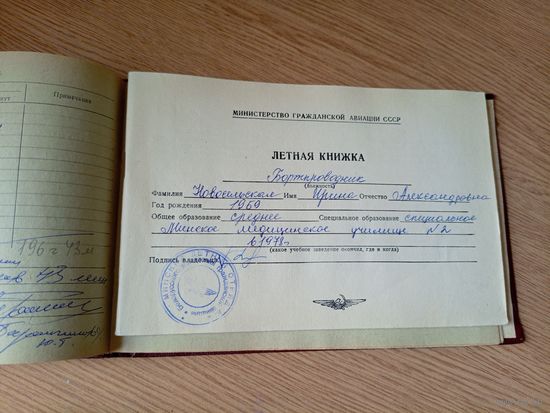 Примечания
196 ч 43 м
43 мин
МИНИСТЕРСТВО ГРАЖДАНСКОЙ АВИАЦИИ СССР
ЛЕТНАЯ КНИЖКА
Бортпроводник
(должность)
Фамилия Новосельская Имя Ирина Отчество Александровна
Год рождения 1959
Общее образование среднее Специальное образование специальное
Минское медицинское училище №2
в 1978г.
(какое учебное заведение окончил, где и когда)
Подпись владельца